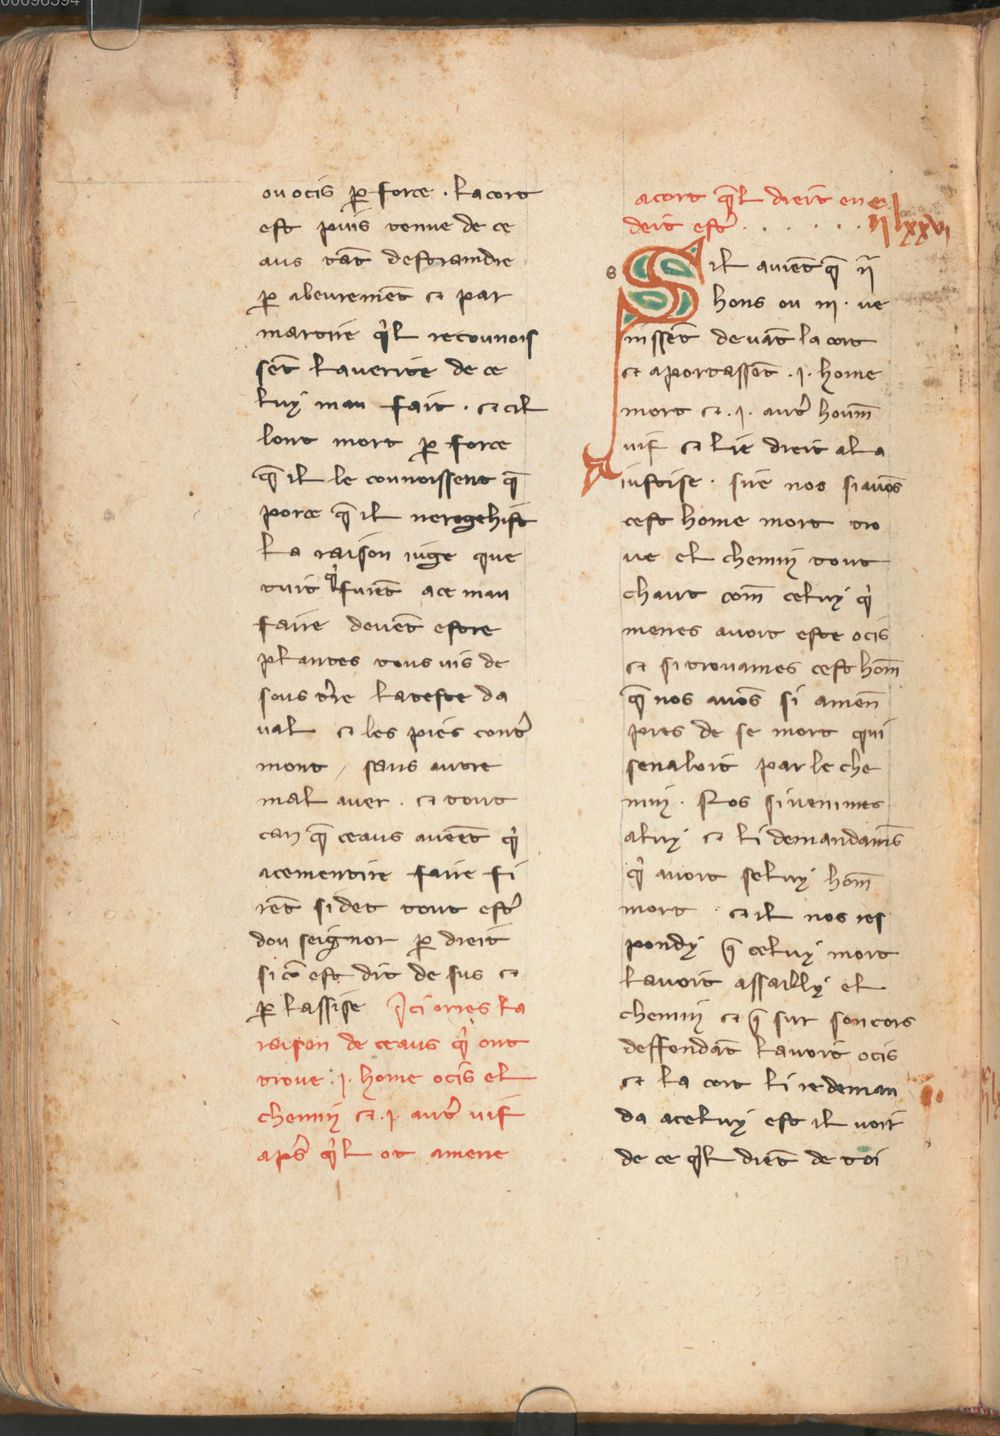 ou ocis ꝑ force . la cort
est puis tenue de ce
aus tāt destraindre
ꝑ abeuremēt ⁊ par
martire q̇l reconnois
sēt la verite de ce
luy mau fait . ⁊ cil
lont mort ꝑ force
q̄ il le connoissent q̄
porce q̄ il nerogehist
la raison iuge que
tuit q̇l furēt ace mau
faire devēt estre
plantes tous vis de
sous tr̄e la teste da
val ⁊ les pies contᵉ
mont / sans autre
mal aver . ⁊ tout
can q̄ ceaus aveēt q̇
acementire faire fi
rēt si det tout estᵉ
dou seignor ꝑ dreit
si cō est dit de sus ⁊
ꝑ lassise Ici orres la
raison de ceaus q̇ ont
trove .i. home ocis el
chemin ⁊ .i. autᵉ vif
apᵉs q̇l ot amene
acort q̄l dreit en
deit estᵉ . . . . . . . ij lxxvi
s Sil avient q̄ ij
hons ou iij . ve
nissēt devāt la cort
⁊ aportassēt .i. home
mort ⁊ .i. autᵉ houm̄
vif ⁊ lie dreit ala
iustise . sire nos si avōs
cest home mort tro
ve el chemin tout
chaut com̄ celuy q̇
menes avoit este ocis
⁊ si trovames cest hom̄
q̄ nos avōs si amen̄
pres de se mort qui
senaloit par le che
min . Nos si venimes
aluy ⁊ li demandam̄s
q̇ avoit seluy hom̄
mort ⁊ il nos res
pondy q̄ celuy mort
lavoit assailly el
chemin ⁊ q̄ sur son cors
deffendāt lavoit ocis
⁊ la cort li redeman
da aceluy est il voir
de ce q̇l diēt de toi